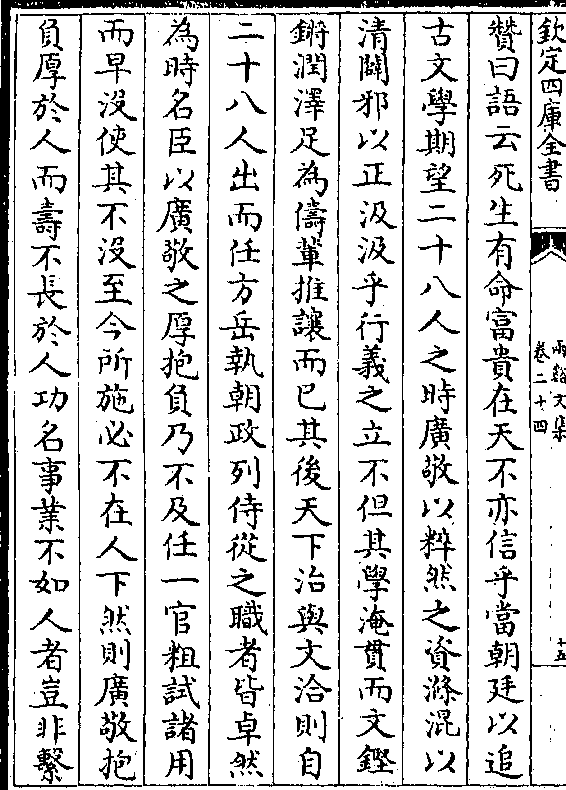 欽定四庫全書
兩谿文集
卷二十四
十五
贊曰語云死生有命富貴在天不亦信乎當朝廷以追
古文學期望二十八人之時廣敬以粹然之資滌混以
清闢邪以正汲汲乎行義之立不但其學淹貫而文鏗
鏘潤澤足為儔輩推讓而已其後天下治與文洽則自
二十八人出而任方岳執朝政列侍從之職者皆卓然
為時名臣以廣敬之厚抱負乃不及任一官粗試諸用
而早沒使其不沒至今所施必不在人下然則廣敬抱
負厚於人而壽不長於人功名事業不如人者豈非繫